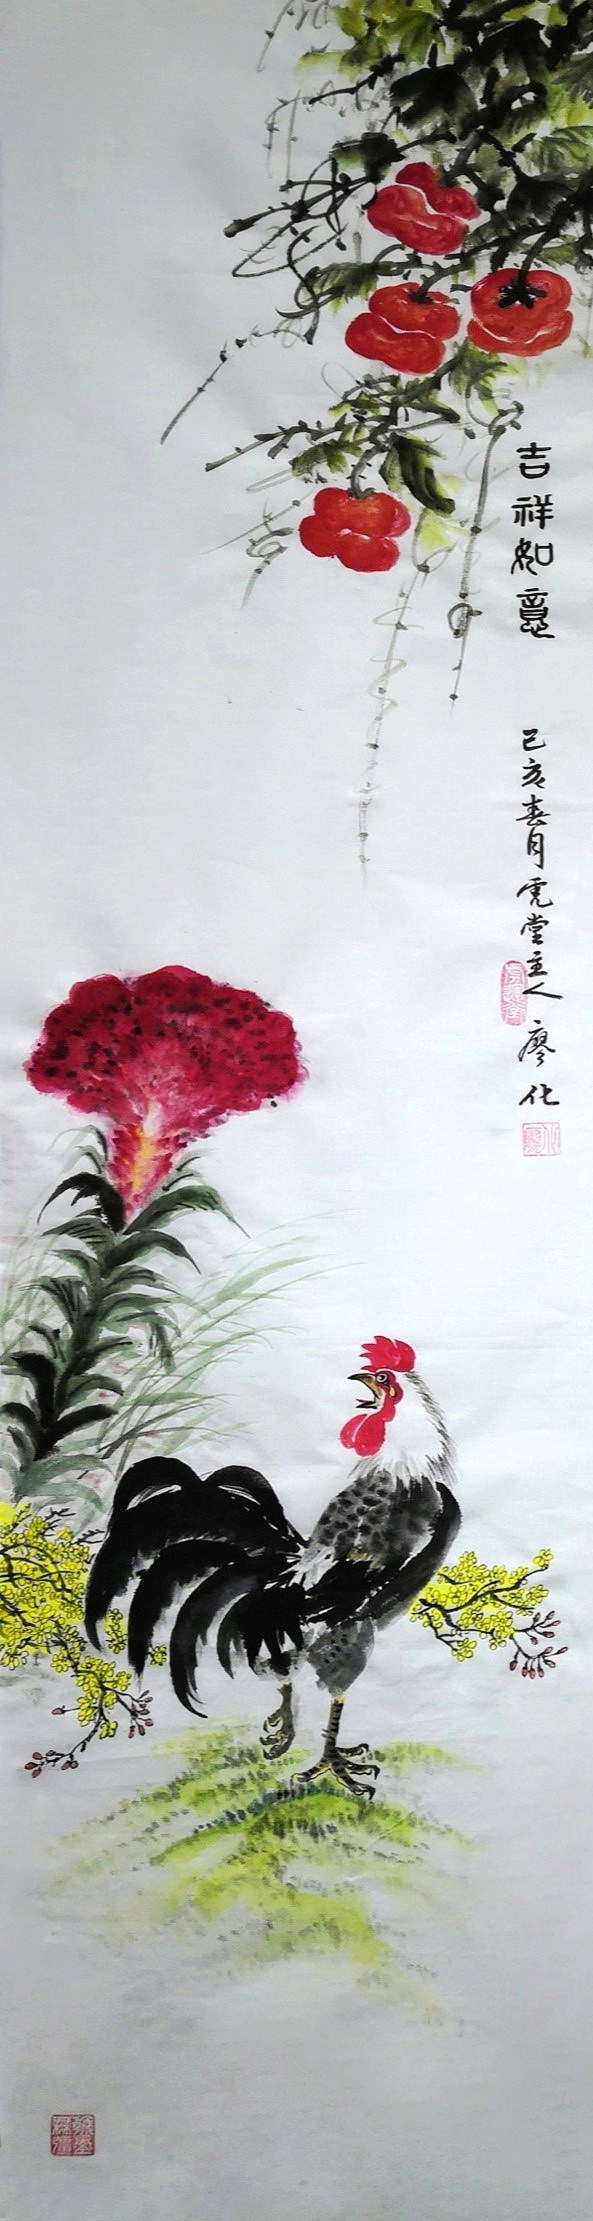 吉祥如意
己亥春月虎堂主人廖化